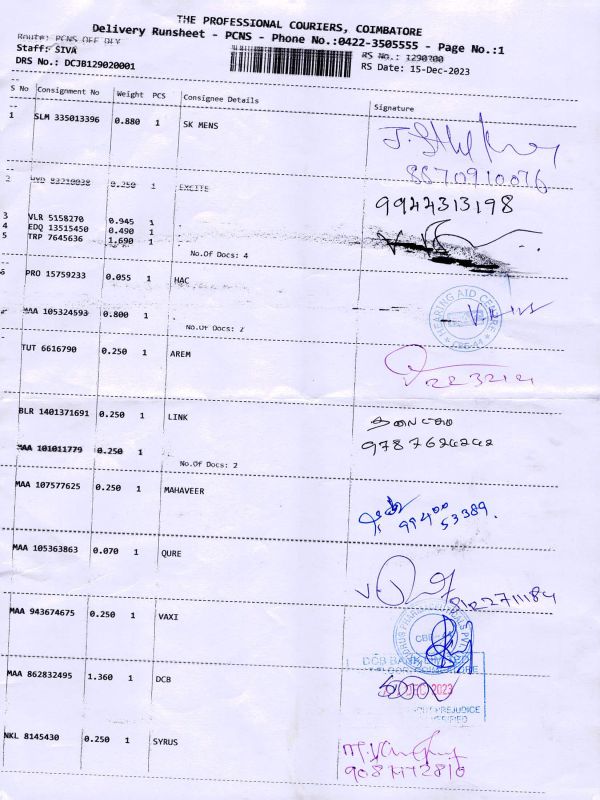 THE PROFESSIONAL COURIERS, COIMBATORE
Delivery Runsheet - PCNS - Phone No.:0422-3505555 - Page No.:1
Route: PCNS OFF DLY
Staff: SIVA
RS No.: 1290200
DRS No.: DCJB129020001
RS Date: 15-Dec-2023
S No Consignment No Weight PCS Consignee Details Signature
1 SLM 335013396 0.880 1 SK MENS
8870910076
2 HYD 83210038 0.250 1 EXCITE
9944313198
3 VLR 5158270 0.945 1
4 EDQ 13515450 0.490 1
5 TRP 7645636 1.690 1
No.Of Docs: 4
6 PRO 15759233 0.055 1 HAC
HEARING AID CENTRE
MAA 105324593 0.800 1
No.Of Docs: 2
TUT 6616790 0.250 1 AREM
BLR 1401371691 0.250 1 LINK
9787624242
MAA 101011779 0.250 1
No.Of Docs: 2
MAA 107577625 0.250 1 MAHAVEER
99400 53389.
MAA 105363863 0.070 1 QURE
8122711184
MAA 943674675 0.250 1 VAXI
CBE
DCB BANK LIMITED
MAA 862832495 1.360 1 DCB
DEC 2023
PREJUDICE
VERIFIED
NKL 8145430 0.250 1 SYRUS